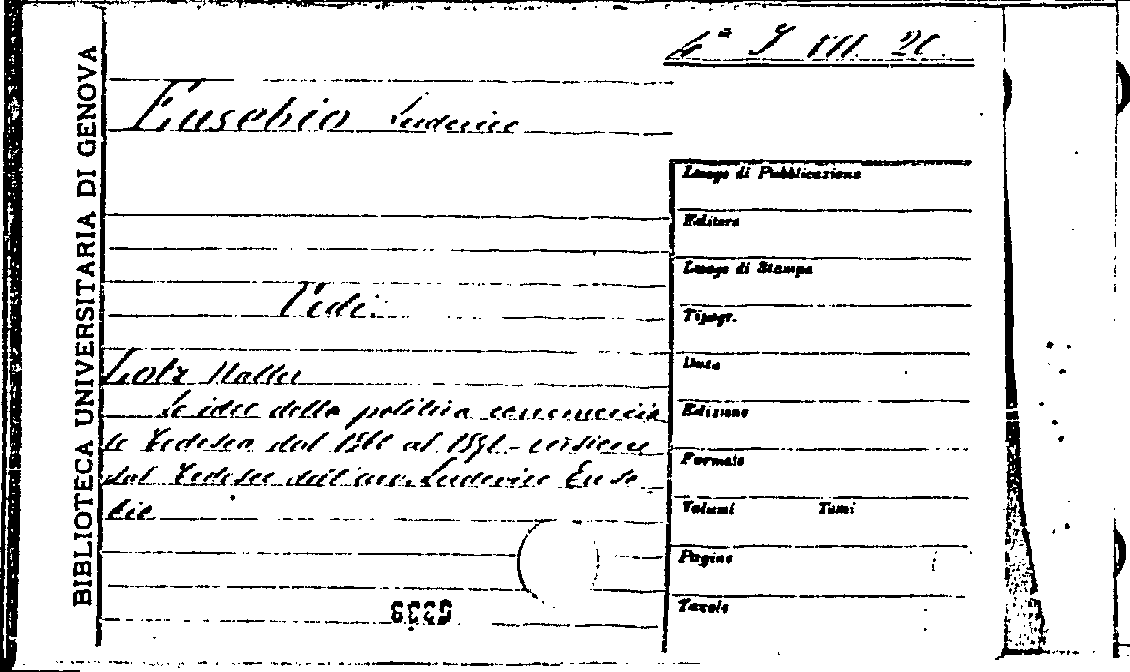 4ª I VII. 20.
BIBLIOTECA UNIVERSITARIA DI GENOVA
Eusebio Ludovico
Vedi:
Lotz Walter
Le idee della politica commercia
le tedesca dal 1860 al 1891 - versione
dal tedesco dell'avv. Ludovico Euse
bio
Luogo di Pubblicazione
Editore
Luogo di Stampa
Tipogr.
Data
Edizione
Formato
Volumi Tomi
Pagine
Tavole